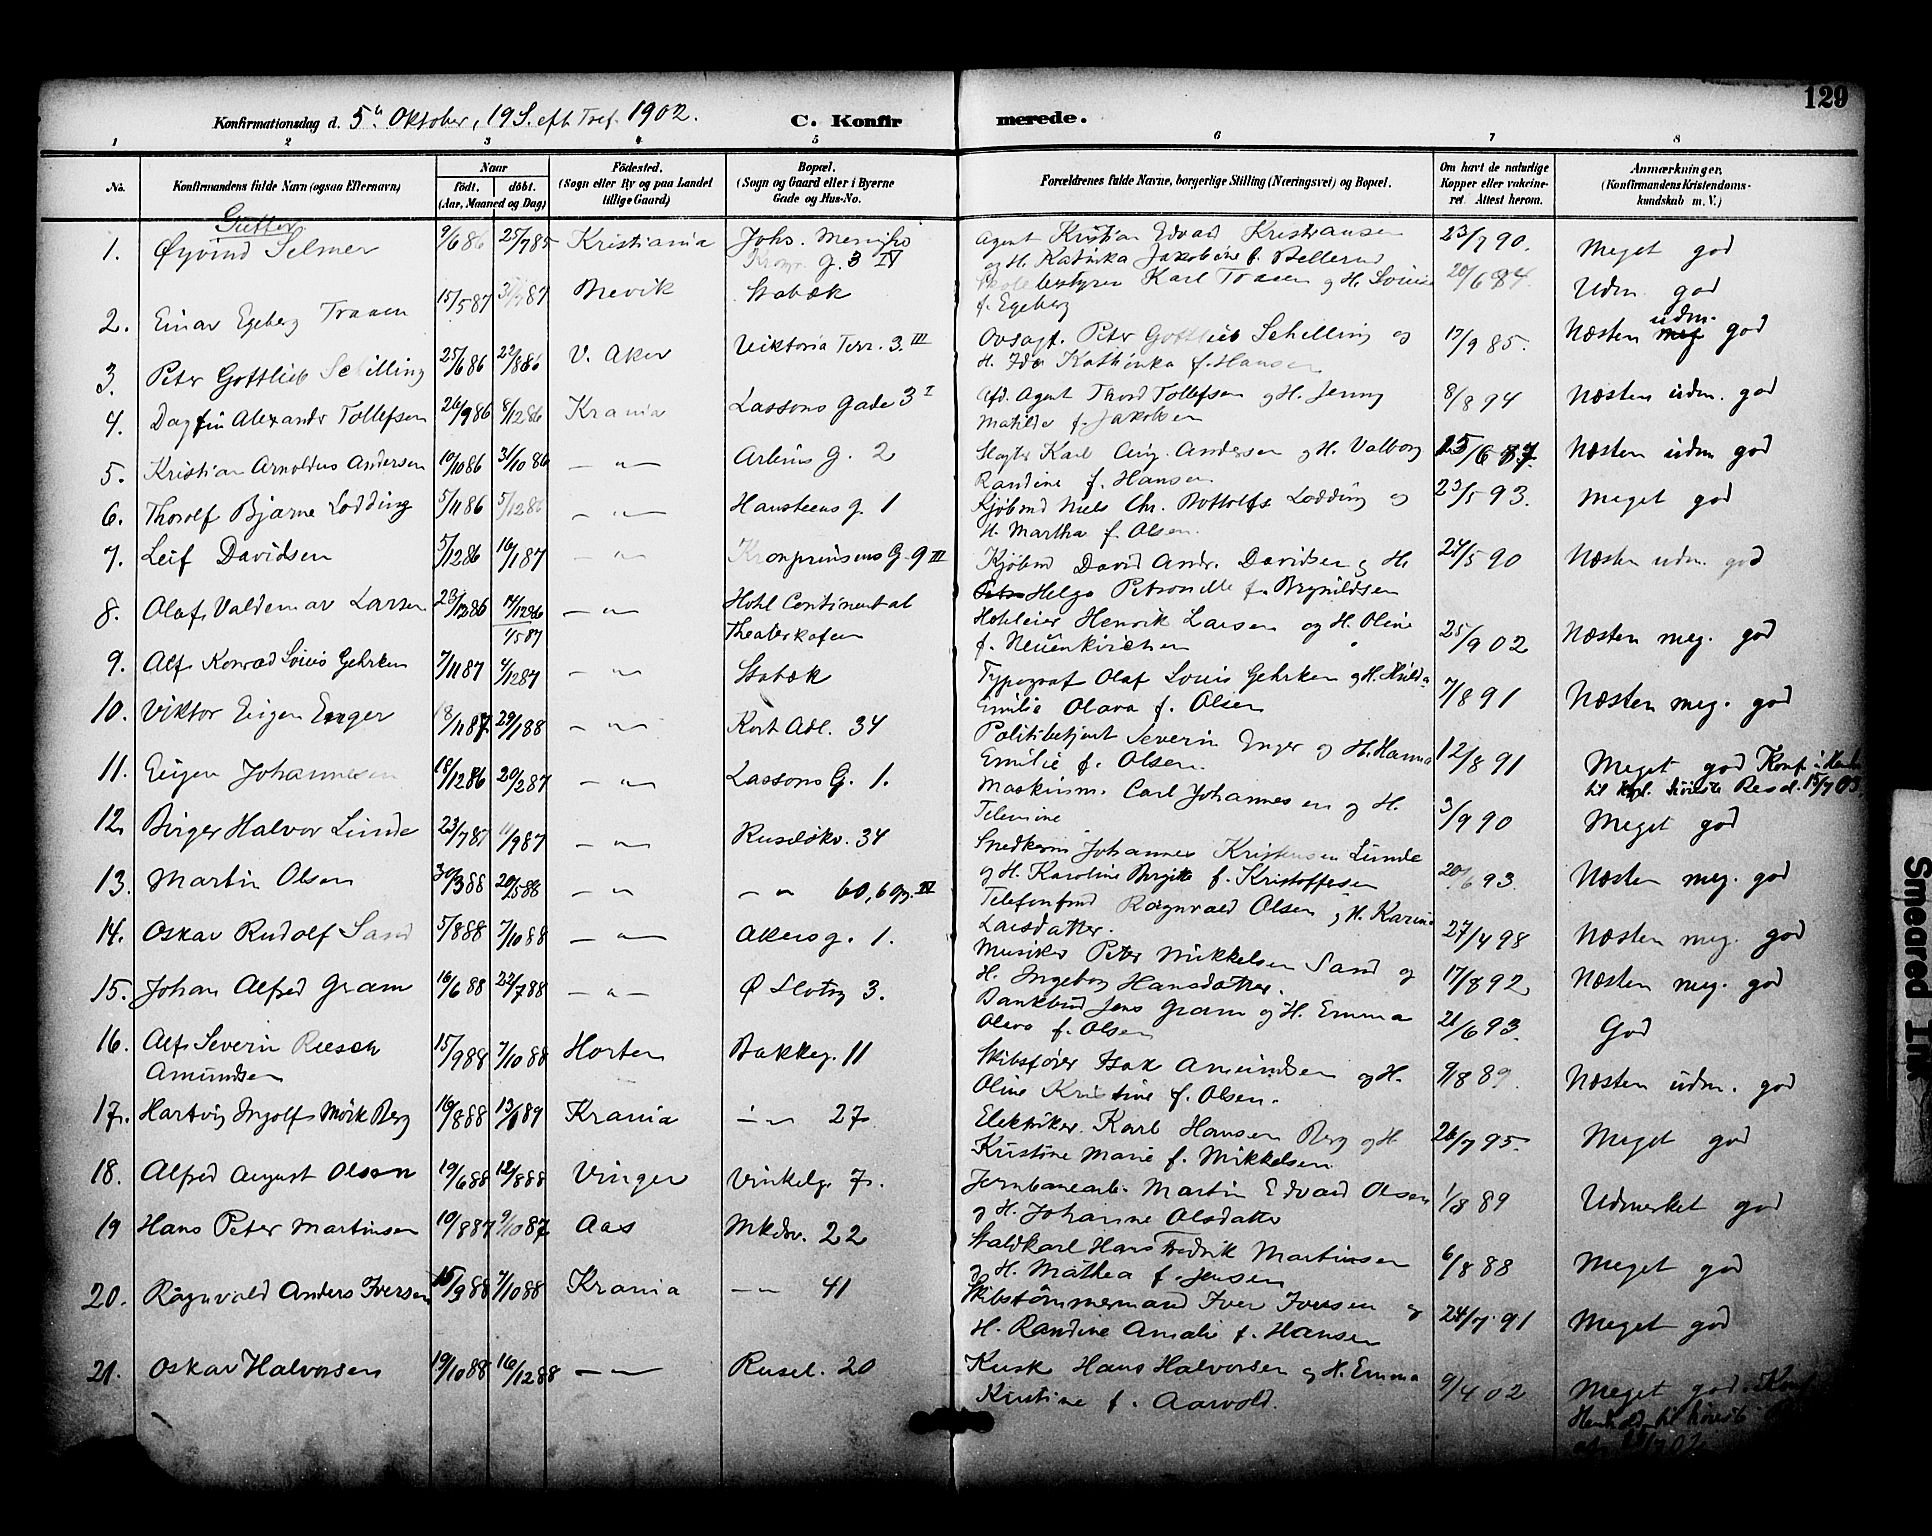 129
Konfirmationsdag d. 5te Oktober, 19 S. eft. Tref. 1902.
C. Konfirmerede.
1 2 3 4 5 6 7 8
No.
Konfirmandens fulde Navn (ogsaa Efternavn)
Naar
født. døbt.
(Aar, Maaned og Dag)
Fødested.
(Sogn eller By og paa Landet
tillige Gaard)
Bopæl.
(Sogn og Gaard eller i Byerne
Gade og Hus-No.
Forældrenes fulde Navne, borgerlige Stilling (Næringsvei) og Bopæl.
Om havt de naturlige
Kopper eller vakcine-
ret. Attest herom.
Anmærkninger,
(Konfirmandens Kristendoms-
kundskab m. V.)
Gutter
1. Øyvind Selmer 9/6 86 25/7 85 Kristiania Johs. g. 3 IV
Agent Kristian Edvard Kristiansen
og H. Katinka Jakobine f. Bellerud
23/7 90. Meget god
2. Einar Egeberg Traaen 15/5 87 Brevik Stabæk
Skolebestyrer Karl Traaen og H. Lovise
f. Egeberg
20/6 94. Udm. god
3. Peter Gottlieb Schilling 25/6 86 22/8 86 V. Aker Viktoria Terr. 3. III
Ovsagf. Peter Gottlieb Schilling og
H. Ida Kathinka f. Hansen
17/9 85. Næsten udm. god
4. Dagfin Alexander Tollefsen 26/9 86 8/12 86 Krania Lassons Gade 3 I
Afd. Agent Thord Tollefsen og H. Jenny
Matilde f. Jakobsen
8/8 94 Næsten udm. god
5. Kristian Arnoldus Andersen 10/10 86 31/10 86 — " — Arbins g. 2
Slagter Karl Aug. Andersen og H. Valborg
Randine f. Hansen
15/6 87. Næsten udm god
6. Thorolf Bjarne Lodding 5/11 86 5/12 86 — " — Hansteens g. 1
Kjøbmd Niels Chr. Bottolfs Lodding og
H. Martha f. Olsen.
23/5 93. Meget god
7. Leif Davidsen 5/12 86 16/1 87 — " — Kronprinsens G. 9 III
Kjøbmd David Andr. Davidsen og H.
Helga Petronelle f. Brynildsen
24/5 90 Næsten udm. god
8. Olaf Valdemar Larsen 23/12 86 1/5 87 — " — Hotel Continental
Theaterkafeen
Hoteleier Henrik Larsen og H. Oline
f. Neuenkirchen
25/9 02 Næsten meg. god
9. Alf Konrad Louis Gehrken 7/11 87 4/12 87 — " — Stabæk
Typograf Olaf Louis Gehrken og H. Hulda
Emilie Olava f. Olsen
7/8 91 Næsten meg. god
10. Viktor Eugen Enger 18/11 87 29/1 88 — " — Kort Adl. 34
Politibetjent Severin Enger og H. Hanna
Emilie f. Olsen.
12/8 91 Meget god Konf. i Henh.
til kgl. Resol. 15/7 03
11. Eugen Johannesen 18/12 86 20/2 87 — " — Lassons G. 1.
Maskinm. Carl Johannesen og H.
Telemine
3/9 90 Meget god
12. Birger Halvor Lunde 23/7 87 11/9 87 — " — Ruseløkv. 34
Snedkerm Johannes Kristensen Lunde
og H. Karoline Birgitte f. Kristoffersen
20/6 93. Næsten meg. god
13. Martin Olsen 30/3 88 20/5 88 — " — — " 60, IV
Telefonfmd Ragnvald Olsen og H. Karine
Larsdatter.
27/4 98 Næsten meg. god
14. Oskar Rudolf Sand 5/8 88 7/10 88 — " — Akersg. 1.
Musiker Peter Mikkelsen Sand og
H. Ingeborg Hansdatter.
17/8 92 Næsten meg. god
15. Johan Alfred Gram 16/6 88 22/7 88 — " — Ø Slotsg 3.
Bankbud Jens Gram og H. Emma
Olava f. Olsen
21/6 93. God
16. Alf Severin Reesch
Amundsen
15/9 88 7/10 88 Horten Bakkeg. 11
Skibsfører Isak Amundsen og H.
Oline Kristine f. Olsen.
9/8 89. Næsten udm. god
17. Hartvig Ingolf Mørk Berg 16/8 88 13/1 89 Krania — " — 27
Elektriker. Karl Hansen Berg og H
Kristine Marie f. Mikkelsen
26/7 95. Meget god
18. Alfred August Olsen 19/6 88 12/8 88 Vinger Vinkelg. 7.
Jernbanearb. Martin Edvard Olsen
og H. Johanne Olsdatter
1/8 89 Udmerket god
19 Hans Peter Martinsen 10/8 87 9/10 87 Aas Mkdsv. 22
Staldkarl Hans Fredrik Martinsen
og H. Mathea f. Jensen
6/8 88 Meget god
20. Ragnvald Anders Iversen 15/9 88 7/10 88 Krania — " — 41
Skibstømmermand Iver Iversen og
H. Randine Amalie f. Hansen
24/7 91 Meget god
21. Oskar Halvorsen 19/10 88 16/12 88 — " — Rusel. 20
Kusk Hans Halvorsen og H. Emma
Kristine f. Aarvold.
9/4 02 Meget god. Konf.
Henhold til
Smeared Ink